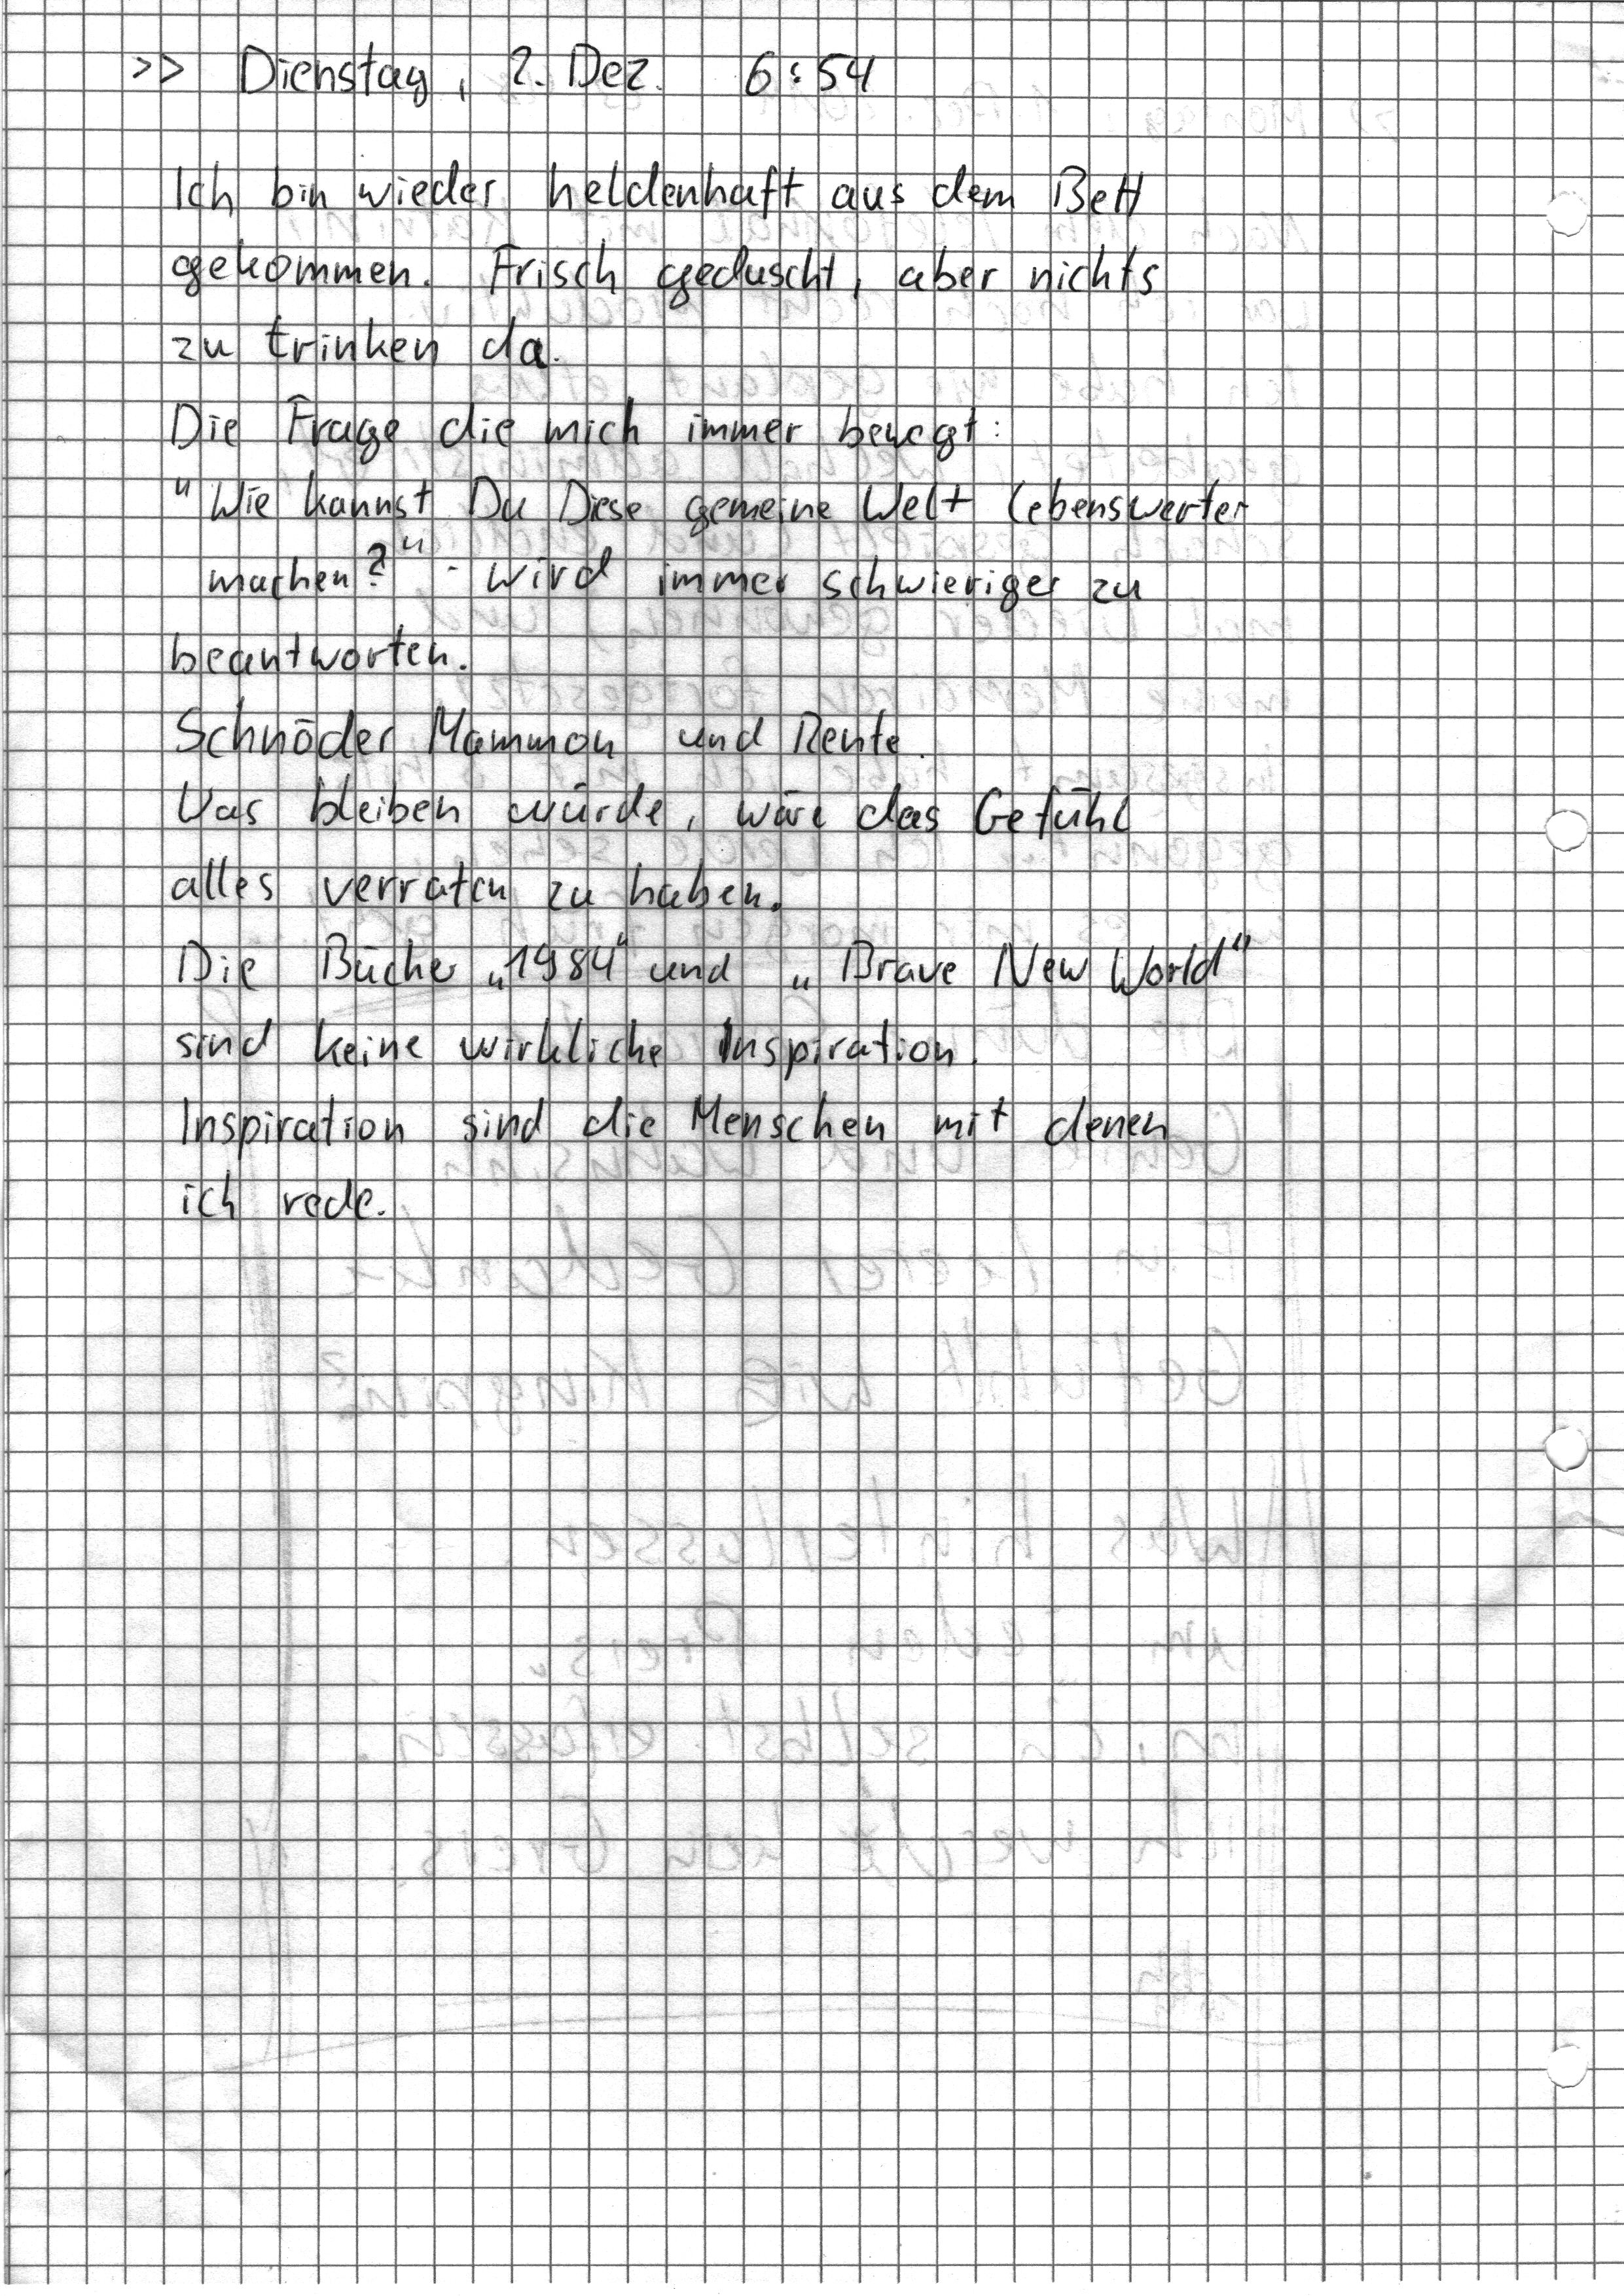 >> Dienstag, 2. Dez. 6:54
Ich bin wieder heldenhaft aus dem Bett
gekommen. Frisch geduscht, aber nichts
zu trinken da.
Die Frage die mich immer bewegt:
"Wie kannst Du Diese gemeine Welt lebenswerter
machen?" - wird immer schwieriger zu
beantworten.
Schnöder Mammon und Rente.
Was bleiben würde, wäre das Gefühl
alles verraten zu haben.
Die Bücher „1984" und „Brave New World"
sind keine wirkliche Inspiration.
Inspiration sind die Menschen mit denen
ich rede.